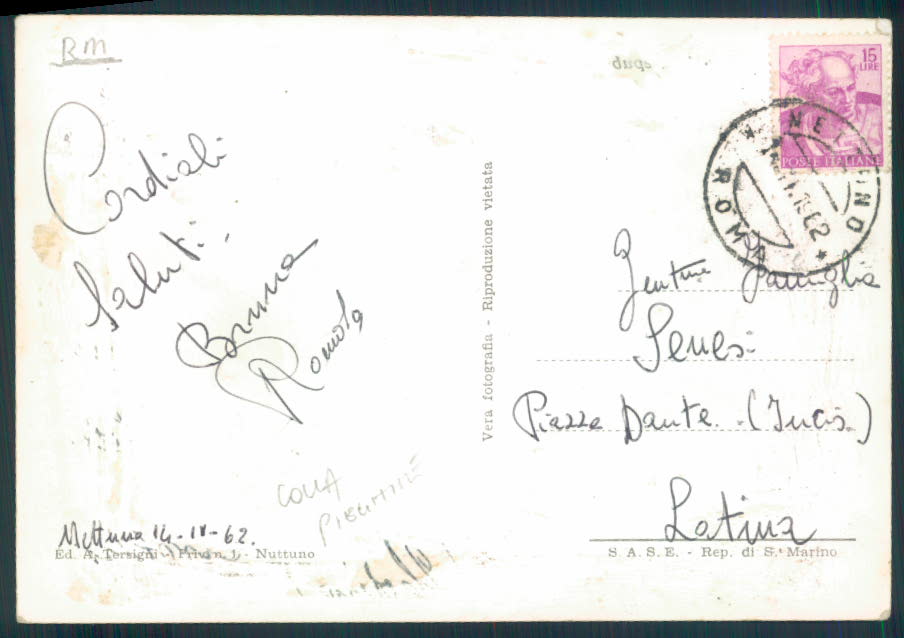 RM
Cordiali
Saluti,
Bruna
Romola
COLLA
Nettuno 14-IV-62.
Ed. A. Tersigni - Priv. n. 1 - Nuttuno
Vera fotografia - Riproduzione vietata
15
LIRE
POSTE ITALIANE
ROMA
Famiglia
Senesi
Piazza Dante (Incis)
Latina
S. A. S. E. - Rep. di S. Marino